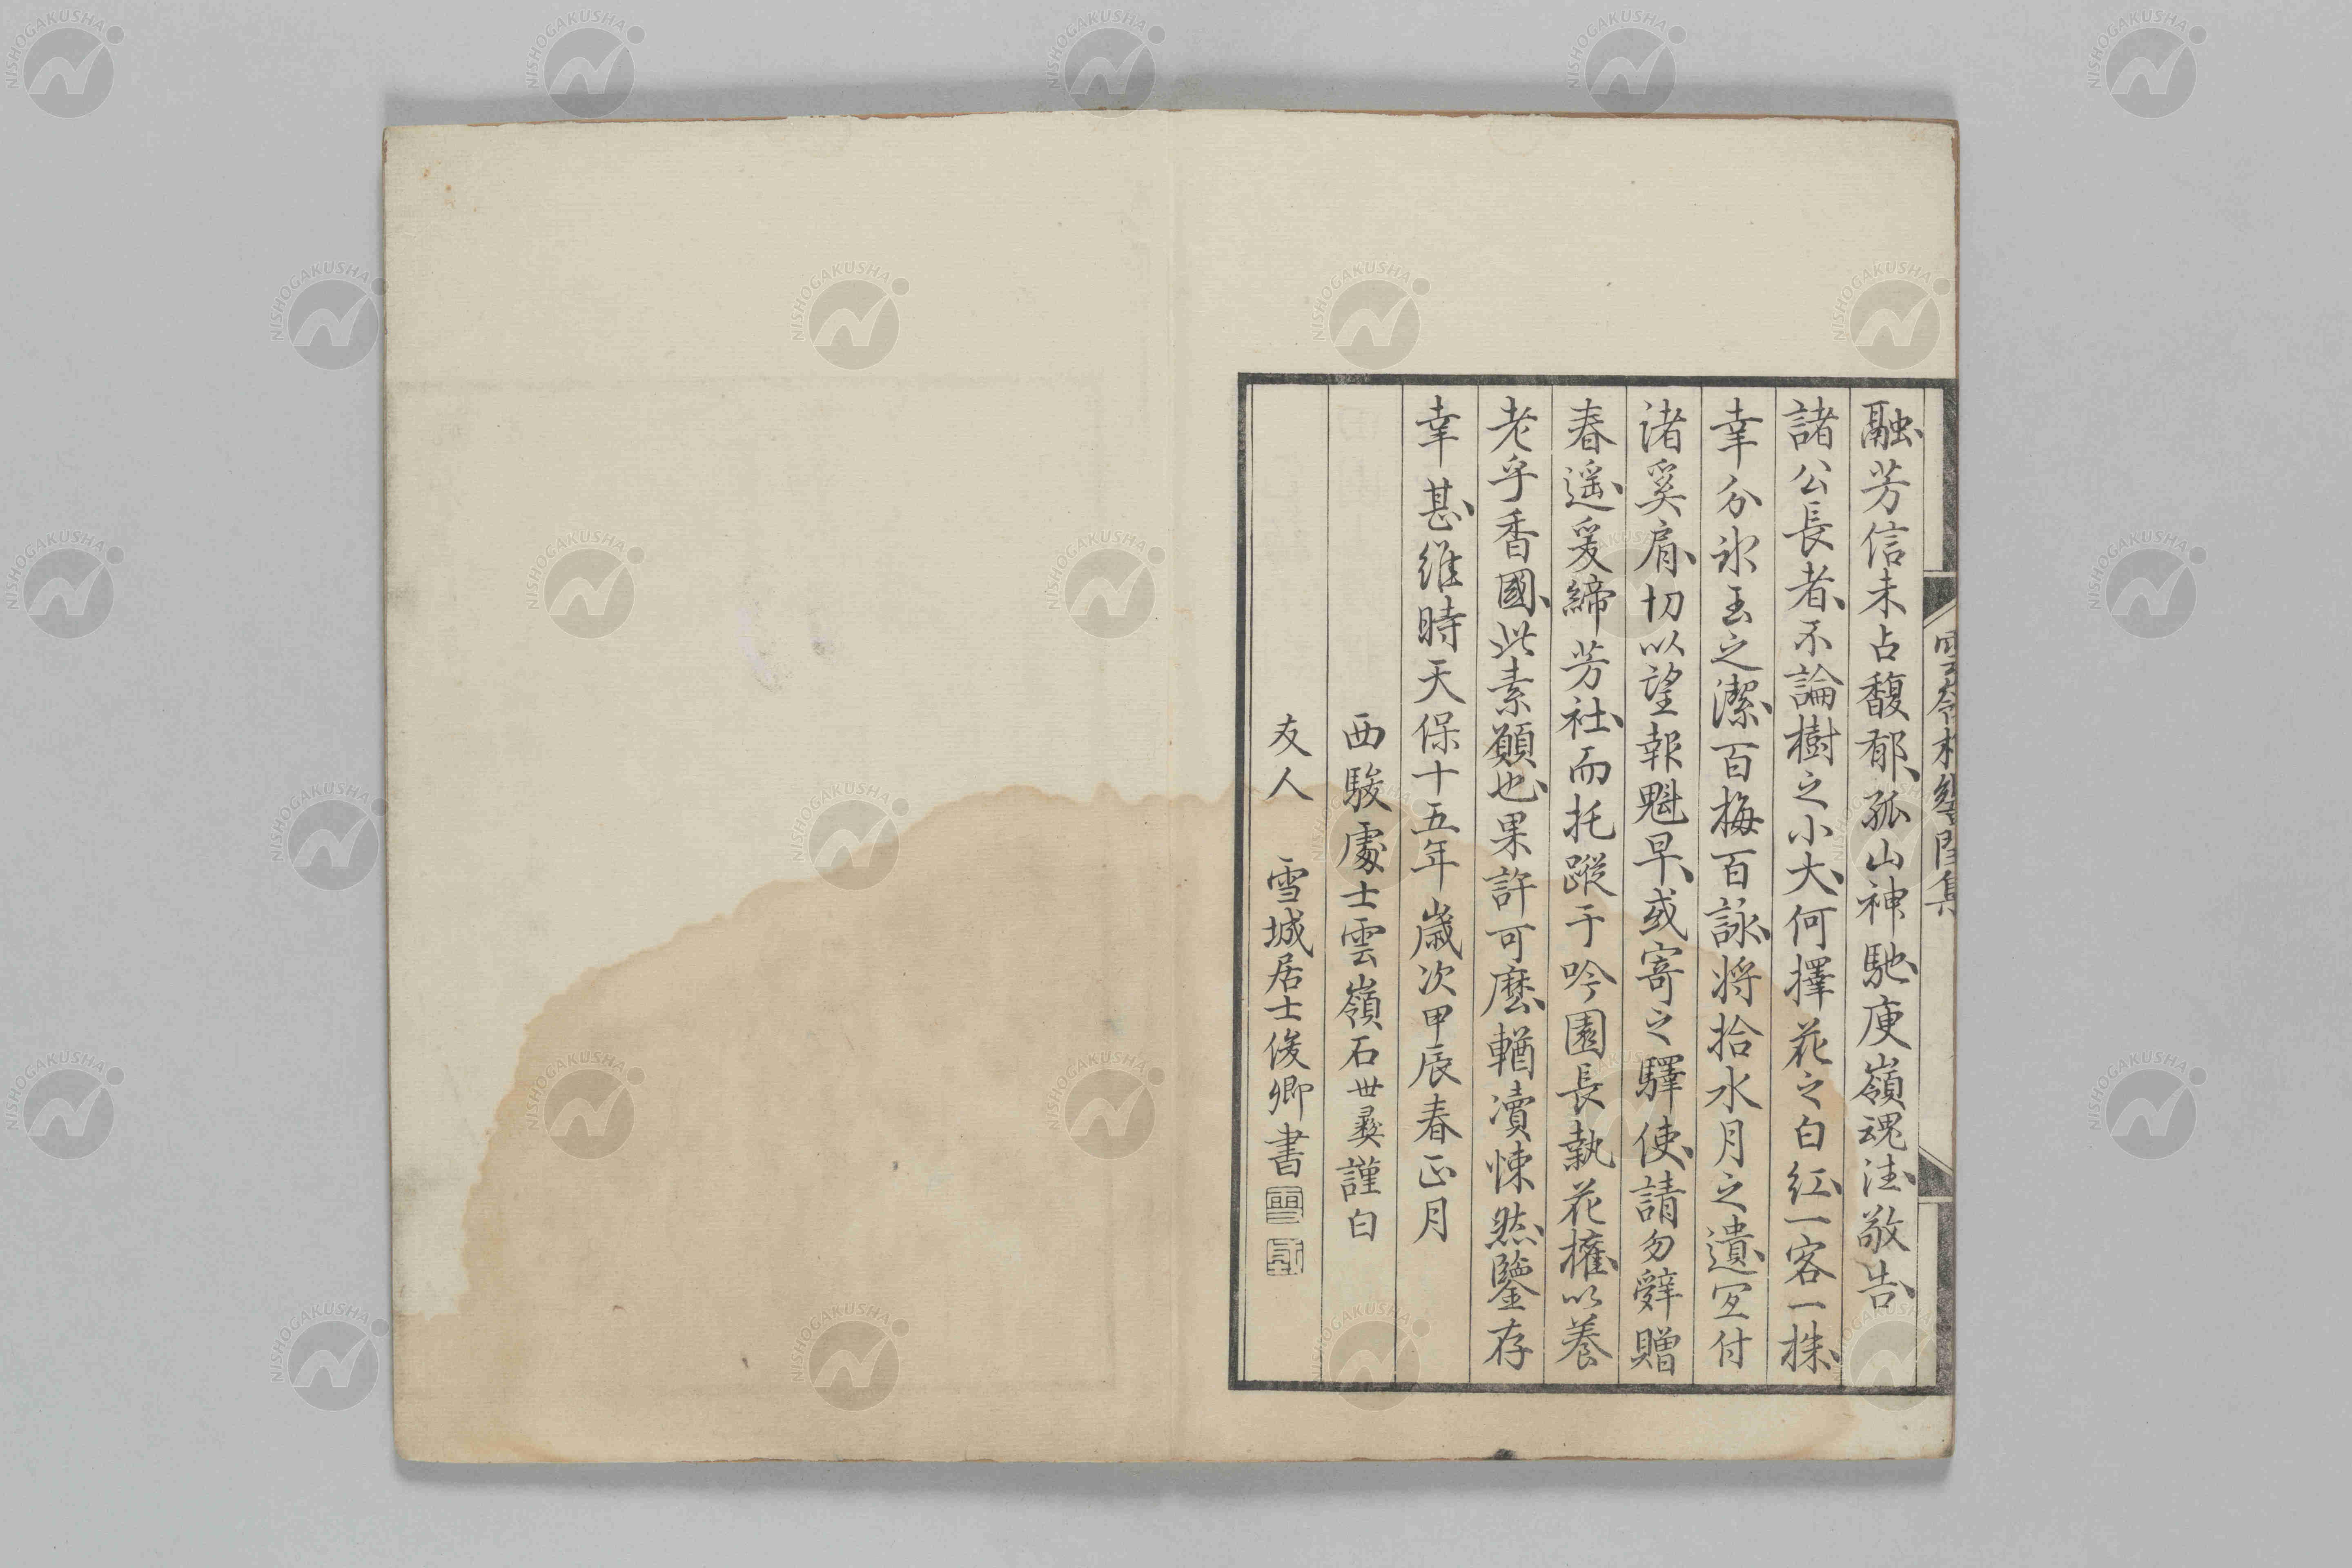 融芳信未占馥郁孤山神馳庾嶺魂法敬告
諸公長者不論樹之小大何擇花之白紅一客一株
幸分氷玉之潔百梅百詠将拾水月之遺宜付
诸奚肩切以望報魁早或寄之驛使請勿辭贈
春遥爰締芳社而托蹤于吟園長執花権以養
老乎香國此素願也果許可麽輶瀆悚然鑒存
幸甚維時天保十五年歳次甲辰春正月
西駿處士雲嶺石世彝謹白
友人 雪城居士俊卿書
NISHOGAKUSHA